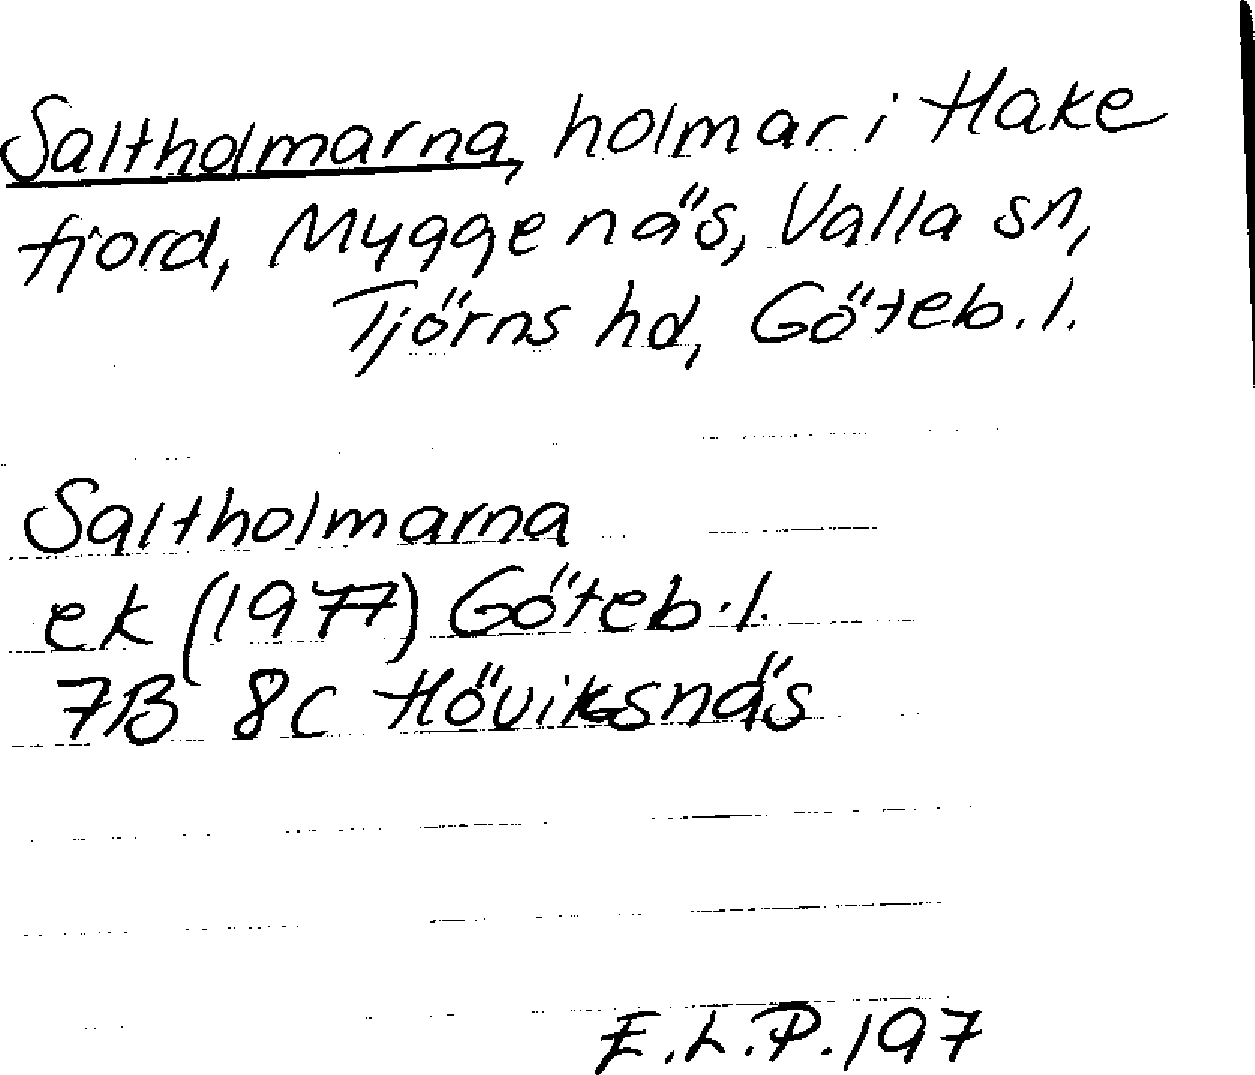 Saltholmarna, holmar i Hake
fjord, Myggenäs, Valla sn,
Tjörns hd, Göteb. l.
Saltholmarna
ek (1977) Göteb. l.
7B 8c Höviksnäs
E.L.P. 197